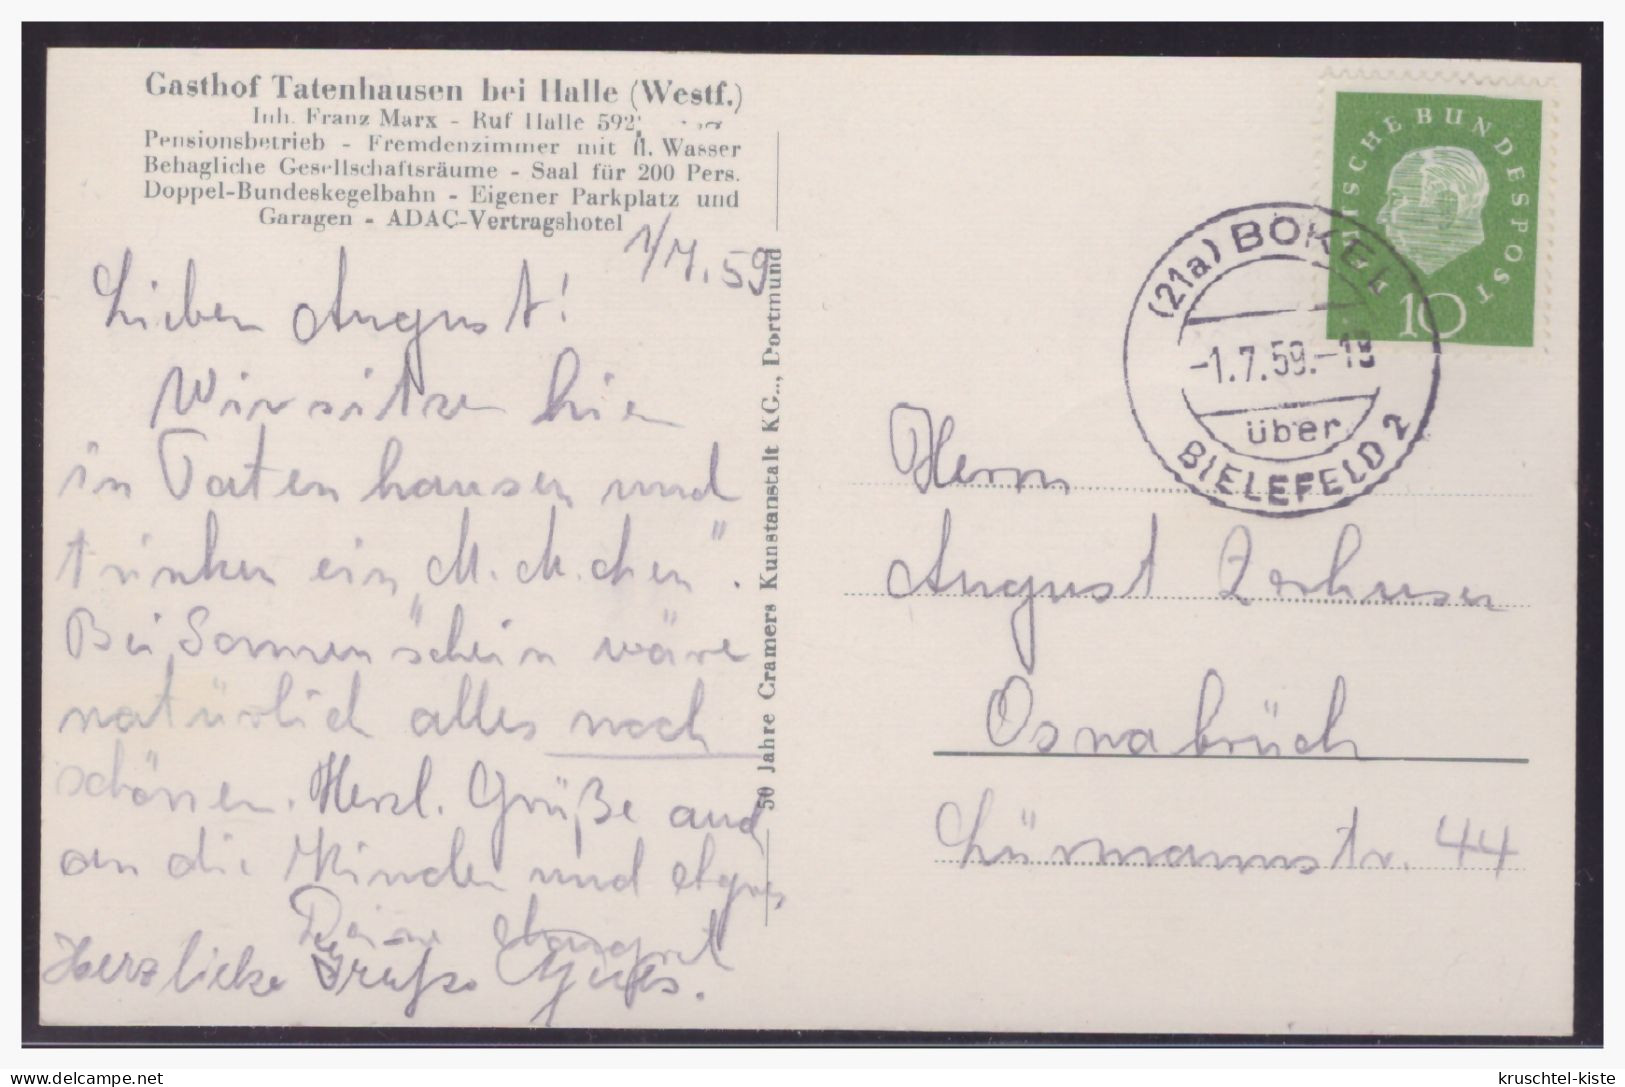 Gasthof Tatenhausen bei Halle (Westf.)
Inh. Franz Marx - Ruf Halle 592
Pensionsbetrieb - Fremdenzimmer mit fl. Wasser
Behagliche Gesellschaftsräume - Saal für 200 Pers.
Doppel-Bundeskegelbahn - Eigener Parkplatz und
Garagen - ADAC-Vertragshotel
1/7.59
Lieber August!
Wir sitzen hier
in Tatenhausen und
trinken ein „M.M.chen".
Bei Sonnenschein wäre
natürlich alles noch
schöner. Herzl. Grüße auch
an die Kinder und Agnes
Deine Margret
Herzliche Grüße
50 Jahre Cramers Kunstanstalt KG., Dortmund
DEUTSCHE BUNDESPOST
10
(21a) BOKEL
-1.7.59.-
über
BIELEFELD 2
Herrn
August
Osnabrück
Lürmannstr. 44
delcampe.net
kruschtel-kiste